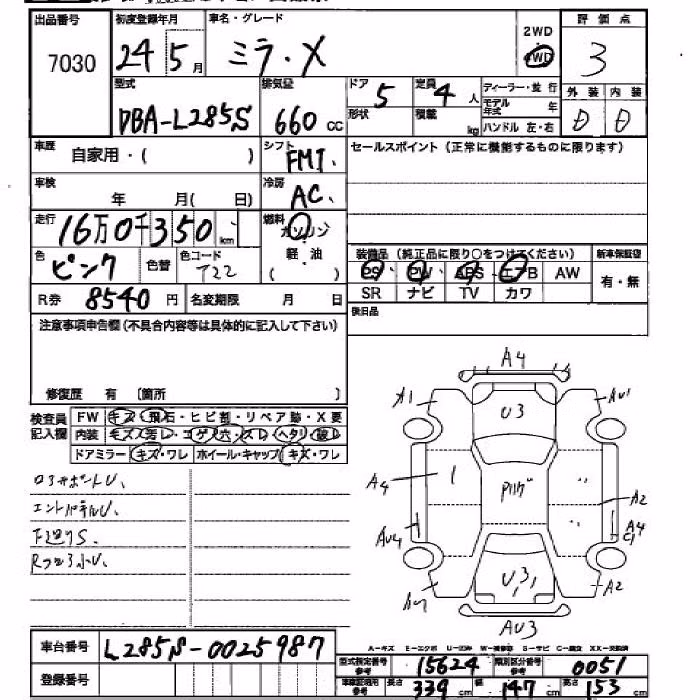 出品番号 初度登録年月 車名・グレード 2WD 評価点
7030 24 5月 ミラ・X 4WD 3
型式 排気量 ドア 定員 ディーラー・並行 外装 内装
DBA-L285S 660 CC 5 4人 モデル年式 年 D D
形状 積載 kg ハンドル 左・右
車歴 自家用・( ) シフト FMT. セールスポイント(正常に機能するものに限ります)
車検 年 月( 日) 冷房 AC.
走行 16万0千350 km 燃料 ガソリン
色 ピンク 色替 色コード T22 軽・油 ( )
装備品(純正品に限り○をつけてください) 新車保証書
PS PW ABS エアB AW 有・無
R券 8540円 名変期限 月 日 SR ナビ TV カワ
注意事項申告欄(不具合内容等は具体的に記入して下さい) 後日品
修復歴 有 〔箇所 〕
検査員記入欄 FW キズ・飛石・ヒビ割・リペア跡・X要
内装 キズ・汚レ・コゲ・穴・スレ・ヘタリ・破レ
ドアミラー キズ・ワレ ホイール・キャップ キズ・ワレ
A4
A1 U3 AU1
A4 A2
AU4 A4
C1
U3 A2
AU3
下廻りS.
A-キズ E-エクボ U-凹ミ W-補修跡 S-サビ C-腐食 XX-交換済
車台番号 L285S-0025987
型式指定番号 参考 15624 類別区分番号 参考 0051
登録番号
長さ 339 cm 幅 147 cm 高さ 153 cm